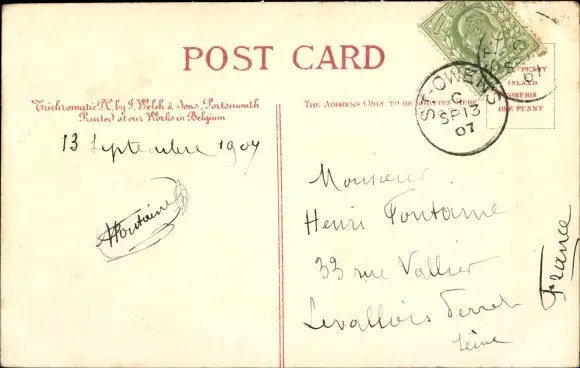 POST CARD
Trichromatic P.C. by J. Welch & Sons, Portsmouth
Printed at our Works in Belgium
THE ADDRESS ONLY TO BE WRITTEN HERE
PENNY
INLAND
FOREIGN
ONE PENNY
ST-OWENS
C
SP 13
07
13 Septembre 1907
HFontaine
Monsieur
Henri Fontaine
33 rue Vallier
Levallois Perret
Seine
France